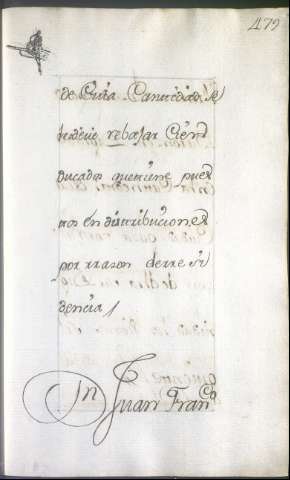 479
de Cuia Canttidad se
ha de rebajar Cien
ducados que tiene pues
tos en distribucion es
por rrason de rre si
dencia /
Juan Franco